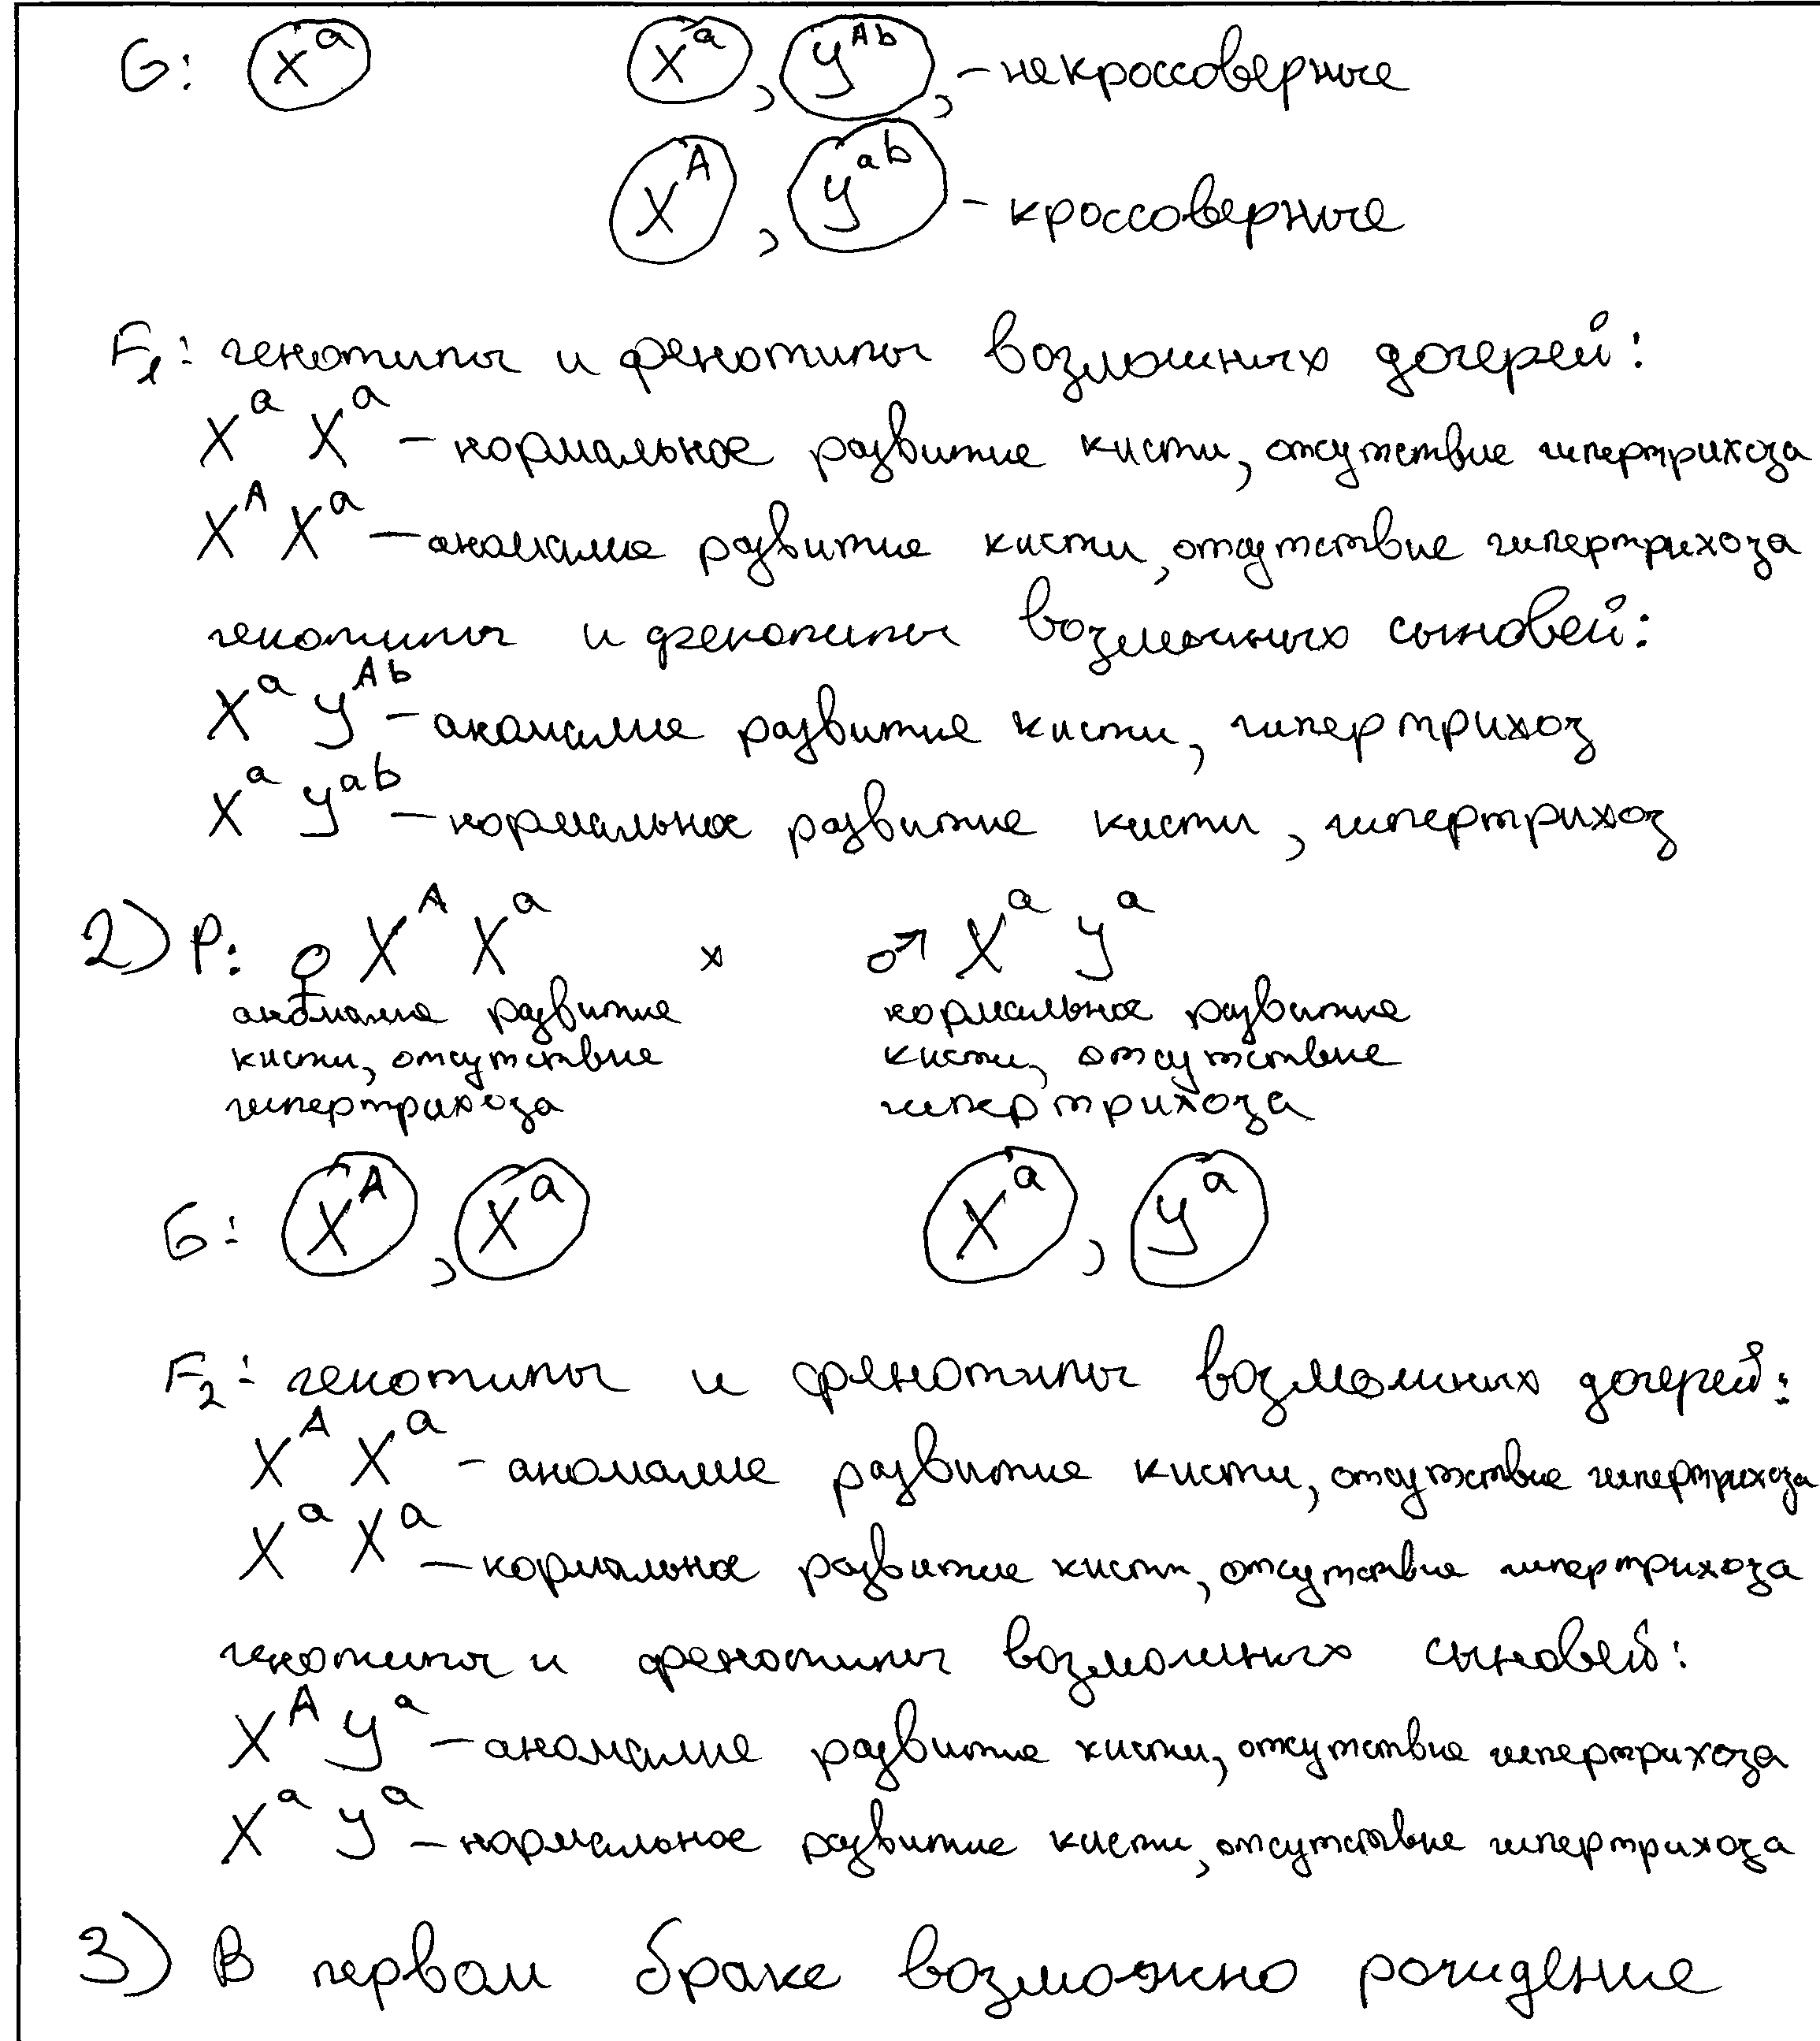 G: X^a X^a, Y^Ab, – некроссоверные
X^A, Y^ab – кроссоверные
F1: генотипы и фенотипы возможных дочерей:
X^a X^a – нормальное развитие кисти, отсутствие гипертрихоза
X^A X^a – аномалия развития кисти, отсутствие гипертрихоза
генотипы и фенотипы возможных сыновей:
X^a Y^Ab – аномалия развития кисти, гипертрихоз
X^a Y^ab – нормальное развитие кисти, гипертрихоз
2) P: ♀ X^A X^a x ♂ X^a Y^a
аномалия развития нормальное развитие
кисти, отсутствие кисти, отсутствие
гипертрихоза гипертрихоза
G: X^A, X^a X^a, Y^a
F2: генотипы и фенотипы возможных дочерей:
X^A X^a – аномалия развития кисти, отсутствие гипертрихоза
X^a X^a – нормальное развитие кисти, отсутствие гипертрихоза
генотипы и фенотипы возможных сыновей:
X^A Y^a – аномалия развития кисти, отсутствие гипертрихоза
X^a Y^a – нормальное развитие кисти, отсутствие гипертрихоза
3) В первом браке возможно рождение